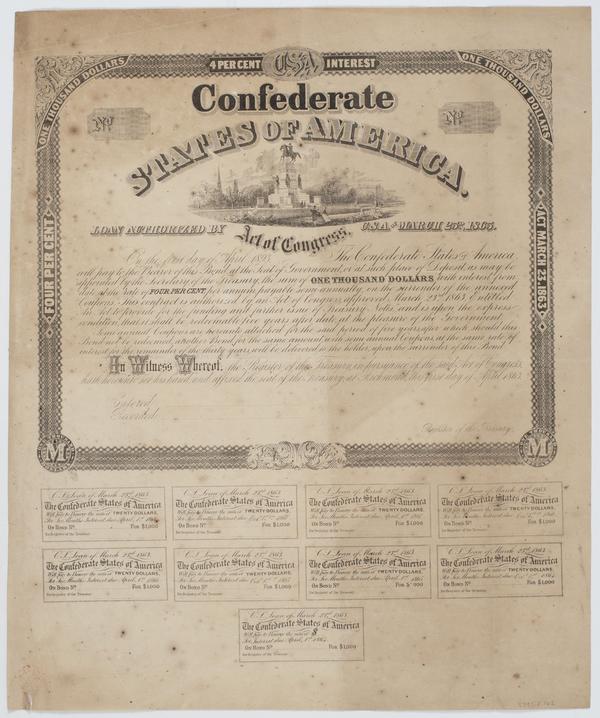 4 PER CENT CSA INTEREST
ONE THOUSAND DOLLARS
ONE THOUSAND DOLLARS
Confederate
No
No
STATES OF AMERICA.
LOAN AUTHORIZED BY
C.S.A. OF MARCH 23D, 1863.
Act of Congress,
FOUR PER CENT
ACT MARCH 23, 1863
On the first day of April 1893 The Confederate States of America
will pay to the Bearer of this Bond, at the Seat of Government, or at such place of Deposit as may be
appointed by the Secretary of the Treasury, the sum of ONE THOUSAND DOLLARS, with interest from
date at the rate of FOUR PER CENT, per annum, payable semi annually on the surrender of the annexed
Coupons. This contract is authorized by an Act of Congress, approved, March 23rd 1863. Entitled
An Act to provide for the funding and further issue of Treasury Notes, and is upon the express
condition that it shall be redeemable five years after date, at the pleasure of the Government.
Semi annual Coupons are hereunto attached for the said period of five years after which should this
Bond not be redeemed, another Bond for the same amount with semi annual Coupons at the same rate of
interest for the remainder of the thirty years will be delivered to the holder, upon the surrender of this Bond.
In Witness Whereof, the Register of the Treasury, in pursuance of the said Act of Congress,
hath hereunto set his hand and affixed the seal of the Treasury, at Richmond, this first day of April 1863.
Entered
Recorded
Register of the Treasury.
M
M
C.S. Loan of March 23rd, 1863.
The Confederate States of America
Will pay to Bearer the sum of TWENTY DOLLARS,
for Six Months Interest due April, 1st
On Bond No. For $1,000
for Register of the Treasury
C.S. Loan of March 23rd, 1863.
The Confederate States of America
Will pay to Bearer the sum of TWENTY DOLLARS,
for Six Months Interest due Oct. 1st
On Bond No. For $1,000
for Register of the Treasury
C.S. Loan of March 23rd, 1863.
The Confederate States of America
Will pay to Bearer the sum of TWENTY DOLLARS,
for Six Months Interest due April, 1st
On Bond No. For $1,000
for Register of the Treasury
C.S. Loan of March 23rd, 1863.
The Confederate States of America
Will pay to Bearer the sum of TWENTY DOLLARS,
for Six Months Interest due Oct. 1st
On Bond No. For $1,000
for Register of the Treasury
C.S. Loan of March 23rd, 1863.
The Confederate States of America
Will pay to Bearer the sum of TWENTY DOLLARS,
for Six Months Interest due April, 1st
On Bond No. For $1,000
for Register of the Treasury
C.S. Loan of March 23rd, 1863.
The Confederate States of America
Will pay to Bearer the sum of TWENTY DOLLARS,
for Six Months Interest due Oct. 1st
On Bond No. For $1,000
for Register of the Treasury
C.S. Loan of March 23rd, 1863.
The Confederate States of America
Will pay to Bearer the sum of TWENTY DOLLARS,
for Six Months Interest due April, 1st
On Bond No.
for Register of the Treasury
C.S. Loan of March 23rd, 1863.
The Confederate States of America
Will pay to Bearer the sum of TWENTY DOLLARS,
for Six Months Interest due Oct. 1st
On Bond No. For $1,000
for Register of the Treasury
C.S. Loan of March 23rd, 1863.
The Confederate States of America
Will pay to Bearer the sum of $
for Interest due April, 1st 1864
On Bond No. For $1,000
for Register of the Treasury